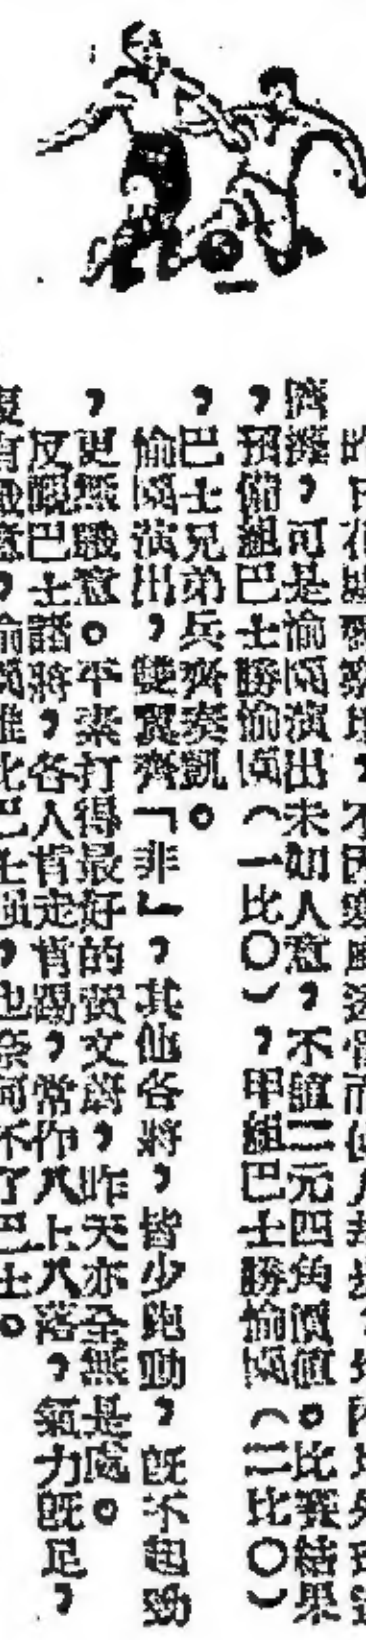 昨日在球場，不因寒風透骨而使人却步，
擠滿，可是愉園演出未如人意，不值二元四角價值。比賽結果
，預備組巴士勝愉園（一比〇），甲組巴士勝愉園（二比〇）
，巴士兄弟兵齊奏凱。
愉園演出，雙翼齊「非」，其他各將，皆少跑動，既不起勁
，更無戰意。平素打得最好的黃文蔚，昨天亦全無是處。
反觀巴士諸將，各人肯走肯踢，常作八上八落，氣力既足，
復有戰意，愉園雖比巴士強，也奈何不了巴士。